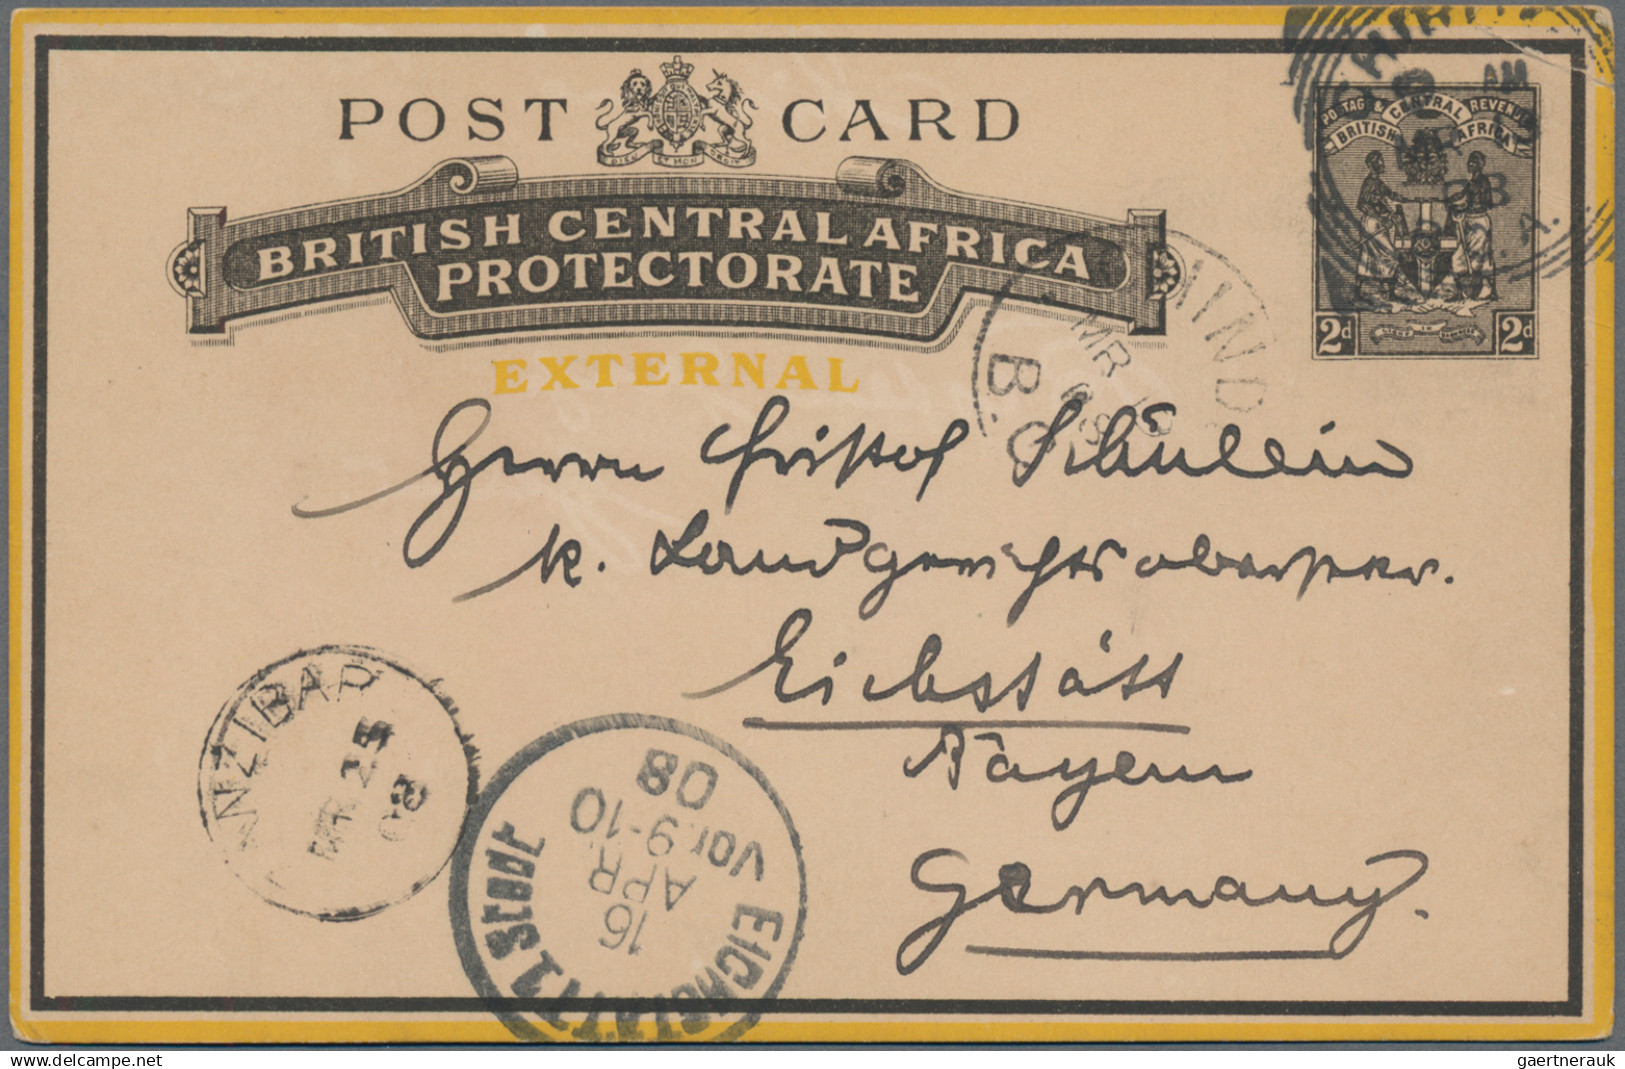 POST CARD
DIEU ET MON DROIT
BRITISH CENTRAL AFRICA
PROTECTORATE
EXTERNAL
POSTAGE & REVENUE
BRITISH CENTRAL AFRICA
LIGHT IN DARKNESS
2d 2d
AM
B
A.
MR
08
B.C.
Herrn Cristof Schülein
k. Landgerichts
Eichstätt
Bayern
Germany.
ANZIBAR
25
08
EICHSTÄTT 1 Stadt
16
APR
Vor. 9-10
08
gaertnerauk